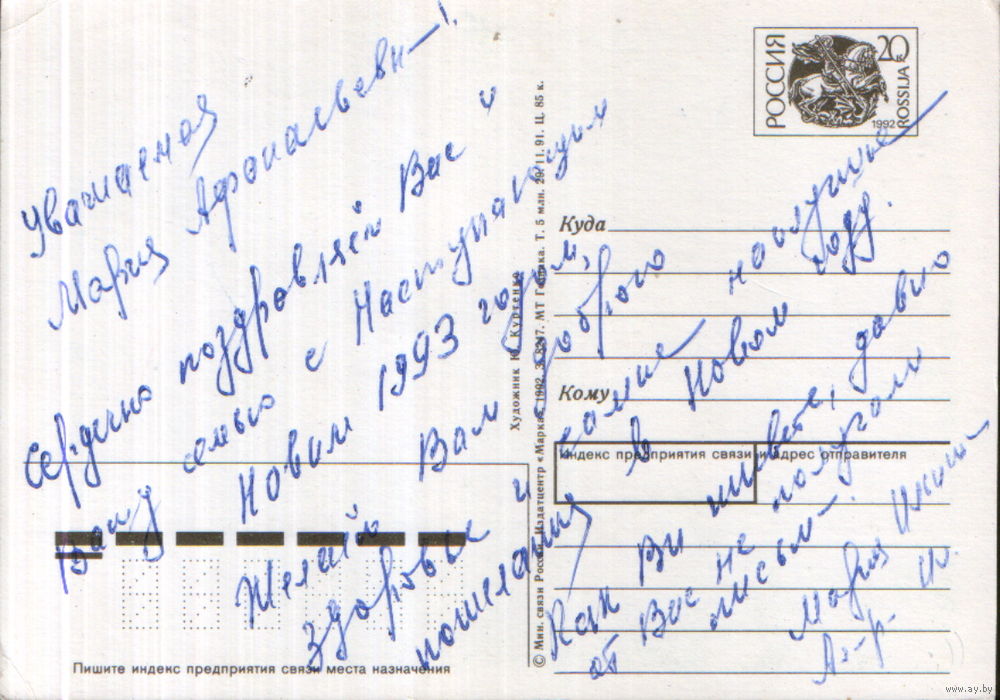 Уважаемая
Мария Афонасьевн-!
Сердечно поздровляем Вас и
Вашу семью с Наступающим
Новим 1993 годом,
Желаю Вам доброго
здоровье и самие наилучшие
пожелания в Новом году.
Как Ви живете, давно
от Вас не получали
письм-
Мария
РОССИЯ
20 к
ROSSIJA
1992
Куда
Кому
Индекс предприятия связи и адрес отправителя
Пишите индекс предприятия связи места назначения
Художник Ю. Куртенко
© Мин. связи России. Издатцентр «Марка». 1992. З. 8247. МТ Гознака. Т. 5 млн. 29.11.91. Ц. 85 к.
www.ay.by